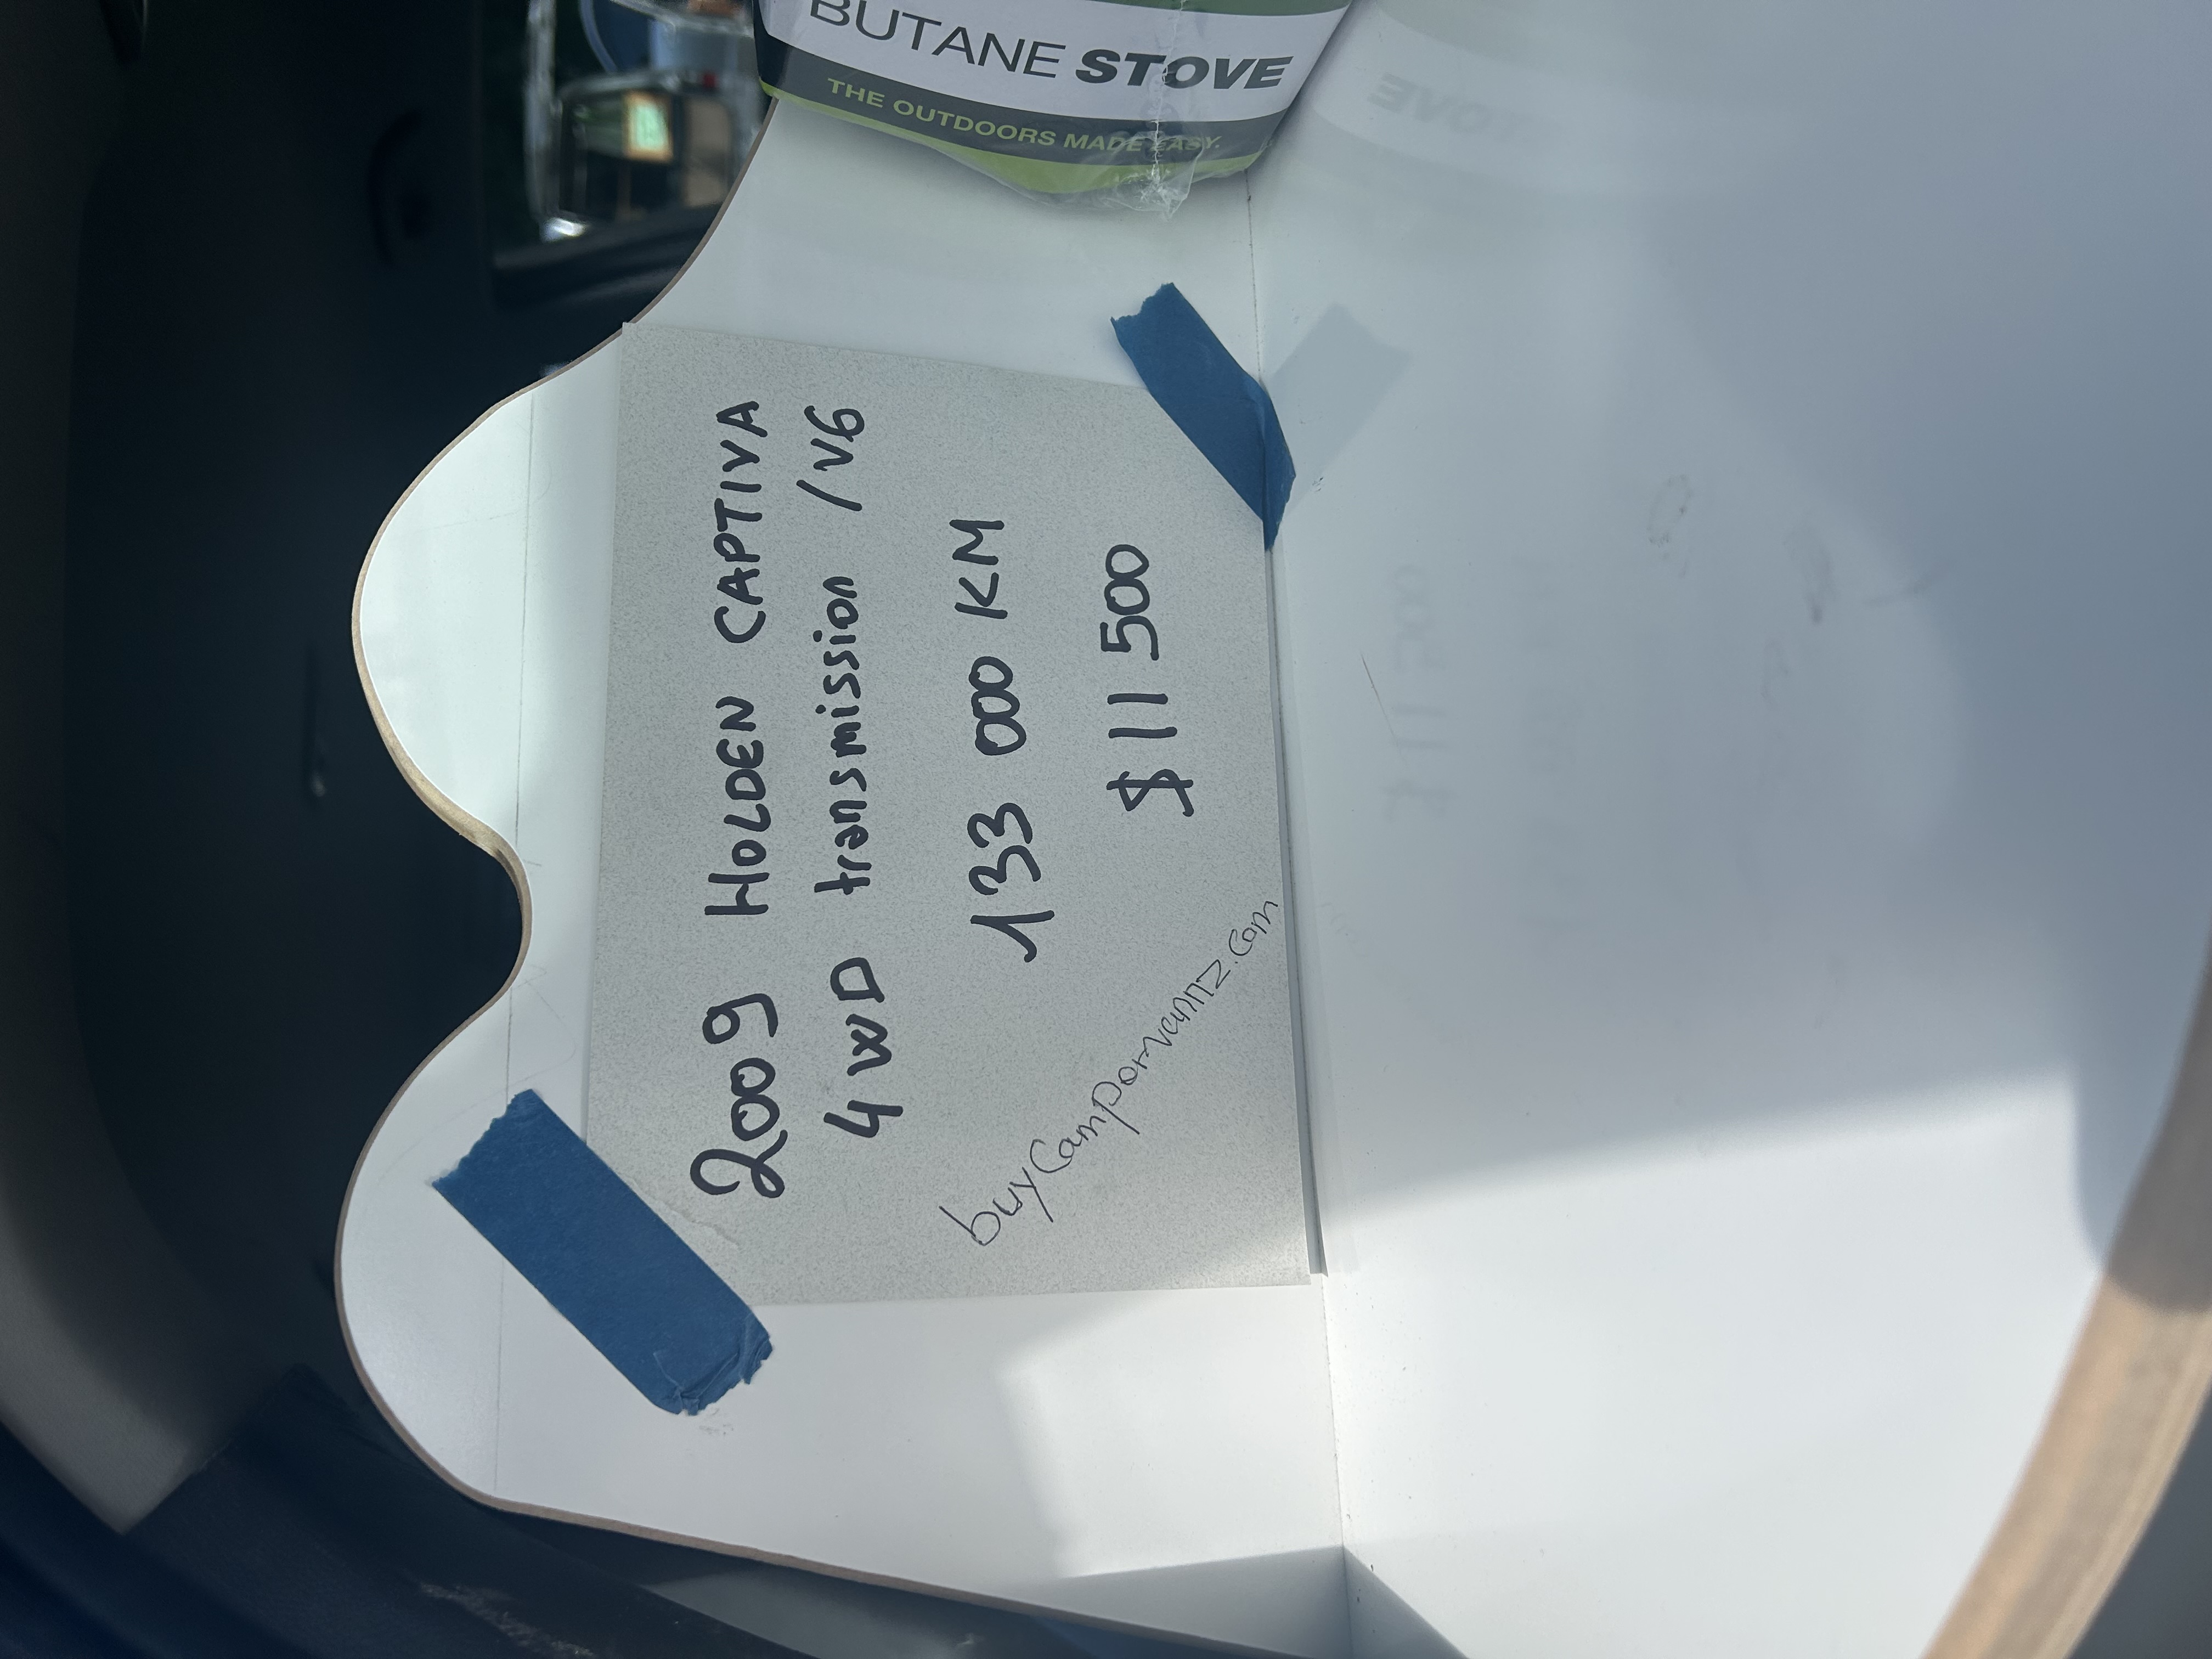 2009 HOLDEN CAPTIVA
4WD transmission /V6
133 000 KM
$11 500
buyCampervannz.com
BUTANE STOVE
THE OUTDOORS MADE EASY.